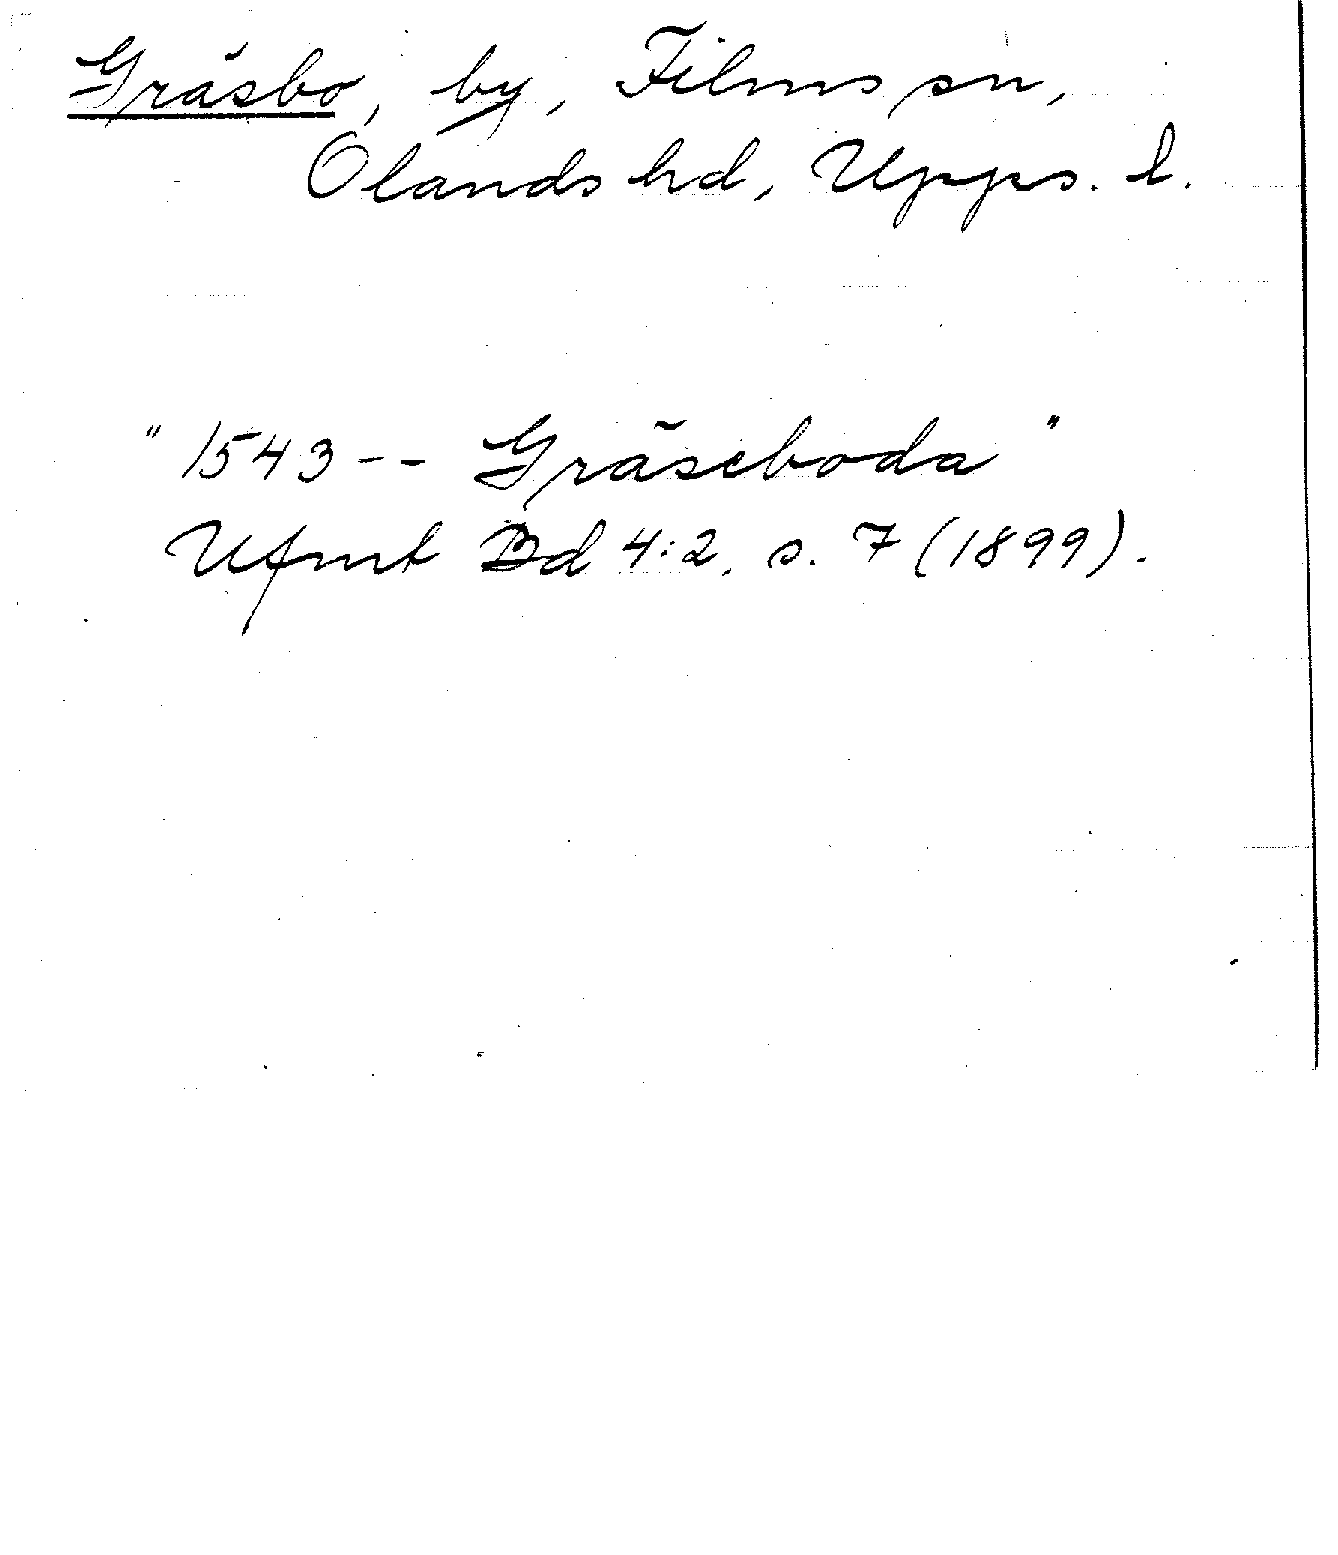 Gräsbo, by, Films sn,
Olands hd, Upps. l.
"1543-- Gräseboda"
Ufmt Bd 4:2, s. 7 (1899).